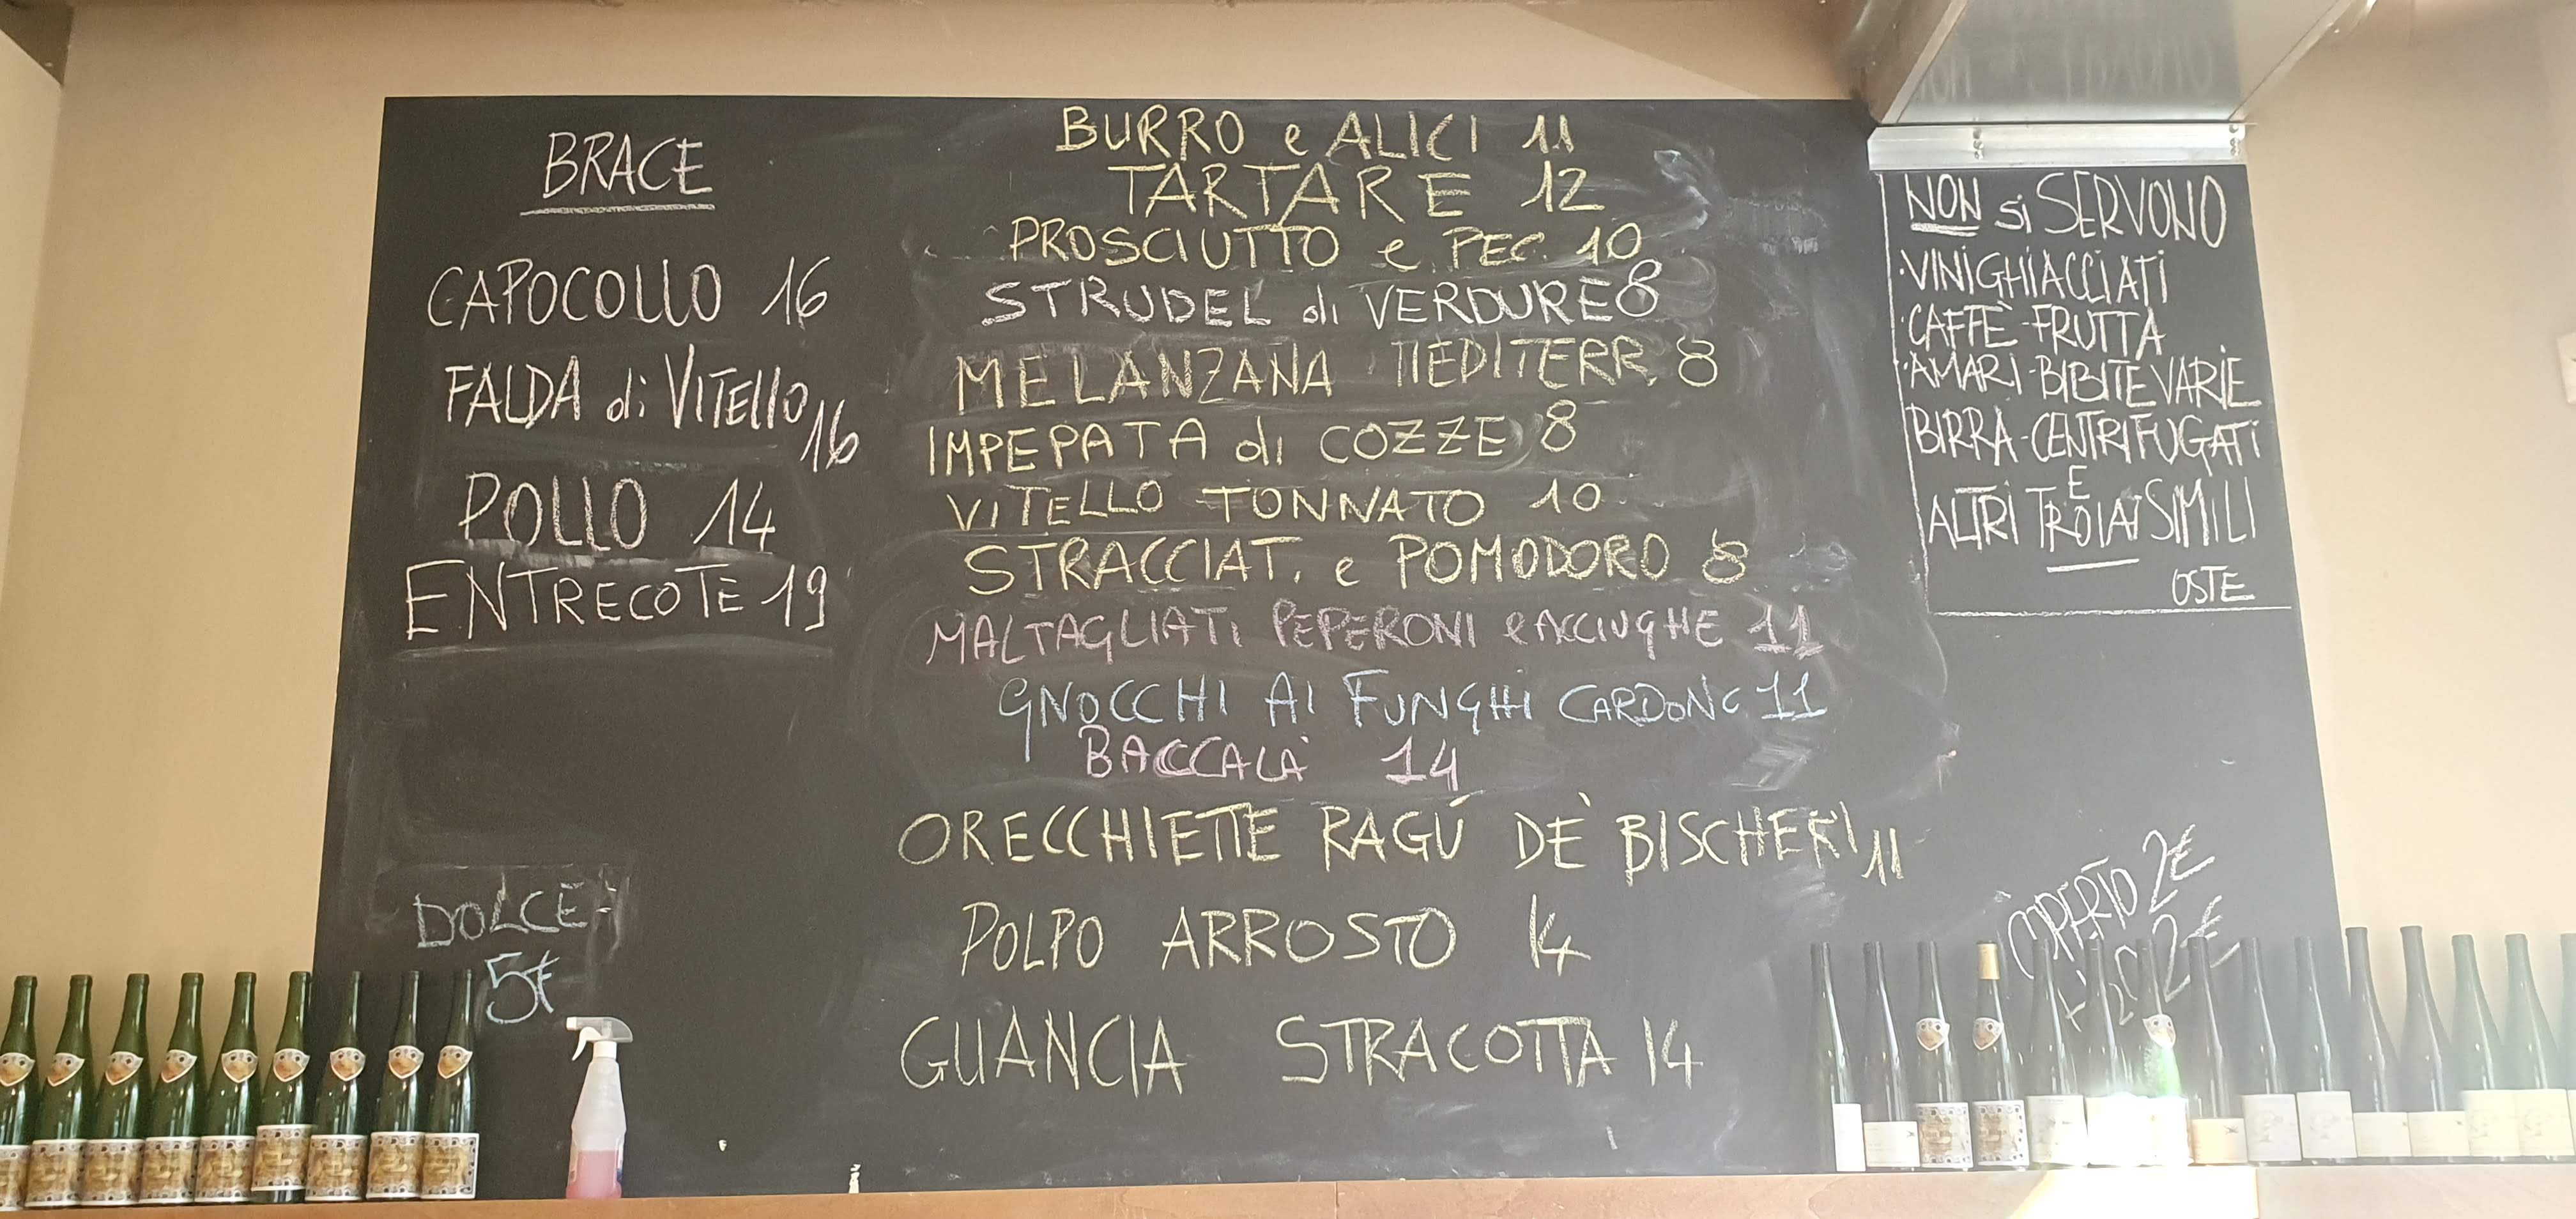 BRACE
CAPOCOLLO 16
FALDA di VITELLO 16
POLLO 14
ENTRECOTE 19
DOLCE
5€
BURRO e ALICI 11
TARTARE 12
PROSCIUTTO e PEC. 10
STRUDEL di VERDURE 8
MELANZANA MEDITERR. 8
IMPEPATA di COZZE 8
VITELLO TONNATO 10
STRACCIAT. e POMODORO 8
MALTAGLIATI PEPERONI e ACCIUGHE 11
GNOCCHI AI FUNGHI CARDONC 11
BACCALA' 14
ORECCHIETTE RAGÚ DÈ BISCHERI 11
POLPO ARROSTO 14
GUANCIA STRACOTTA 14
NON si SERVONO
·VINI GHIACCIATI
·CAFFÈ-FRUTTA
·AMARI-BIBITE VARIE
BIRRA-CENTRIFUGATI
E
ALTRI TROIAI SIMILI
OSTE
COPERTO 2€
2€